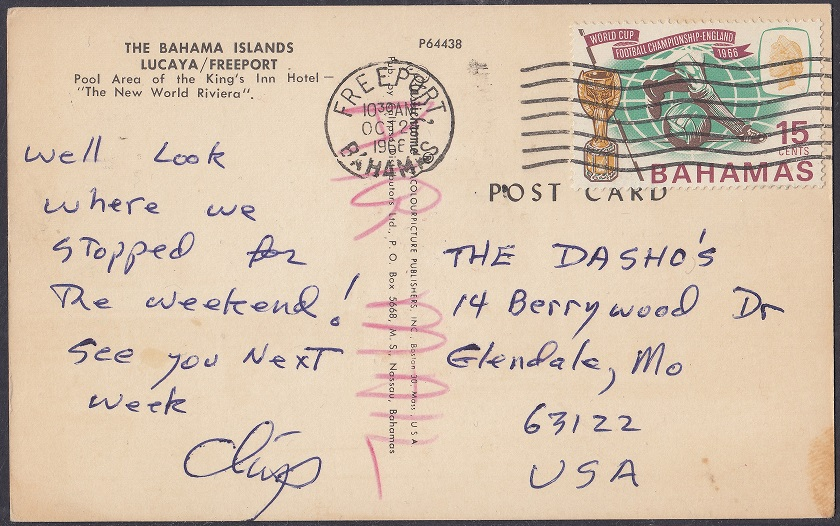 THE BAHAMA ISLANDS
LUCAYA/FREEPORT
Pool Area of the King's Inn Hotel —
"The New World Riviera".
P64438
FREEPORT,
10 30 AM
OCT 2
1968
BAHAMAS
WORLD CUP
FOOTBALL CHAMPIONSHIP-ENGLAND
1966
15
CENTS
BAHAMAS
POST CARD
Well Look
where we
stopped for
The weekend!
See you Next
week
COLOURPICTURE PUBLISHERS, INC., Boston 30, Mass., U S A
Ltd., P. O. Box 5668, M. S., Nassau, Bahamas
AIR MAIL
THE DASHO'S
14 Berrywood Dr
Glendale, Mo
63122
USA